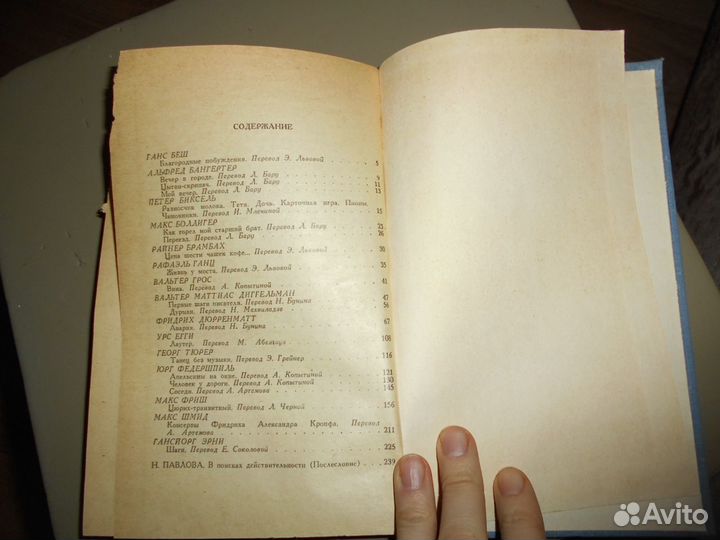 СОДЕРЖАНИЕ
ГАНС БЕШ
Благородные побуждения. Перевод Э. Львовой 5
АЛЬФРЕД БАНГЕРТЕР
Вечер в городе. Перевод Л. Бару 9
Цыган-скрипач. Перевод Л. Бару 11
Мой вечер. Перевод Л. Бару 13
ПЕТЕР БИКСЕЛЬ
Разносчик молока. Тетя. Дочь. Карточная игра. Пионы.
Чиновники. Перевод И. Млечиной 15
МАКС БОЛЛИГЕР
Как горел мой старший брат. Перевод Л. Бару 23
Переезд. Перевод Л. Бару 26
РАЙНЕР БРАМБАХ
Цена шести чашек кофе... Перевод Э. Львовой 30
РАФАЭЛЬ ГАНЦ
Жизнь у моста. Перевод Э. Львовой 35
ВАЛЬТЕР ГРОС
Вниз. Перевод А. Копытиной 41
ВАЛЬТЕР МАТТИАС ДИГГЕЛЬМАН
Первые шаги писателя. Перевод Н. Бунина 47
Дурман. Перевод Н. 56
ФРИДРИХ ДЮРРЕНМАТТ
Авария. Перевод Н. Бунина 67
УРС ЕГГИ
Перевод М. 108
ГЕОРГ ТЮРЕР
Танец без музыки. Перевод Э. Грейнер 116
ЮРГ ФЕДЕРШПИЛЬ
Апельсины на окне. Перевод А. Копытиной 121
Человек у дороги. Перевод А. Копытиной 130
Соседи. Перевод А. Артемова 145
МАКС ФРИШ
Цюрих-транзитный. Перевод Л. Черной 156
МАКС ШМИД
Консервы Фридриха Александра Кропфа. Перевод
А. Артемова 211
ГАНСЙОРГ ЭРНИ
Шаги. Перевод Е. Соколовой 225
Н. ПАВЛОВА. В поисках действительности (Послесловие) 239
Avito